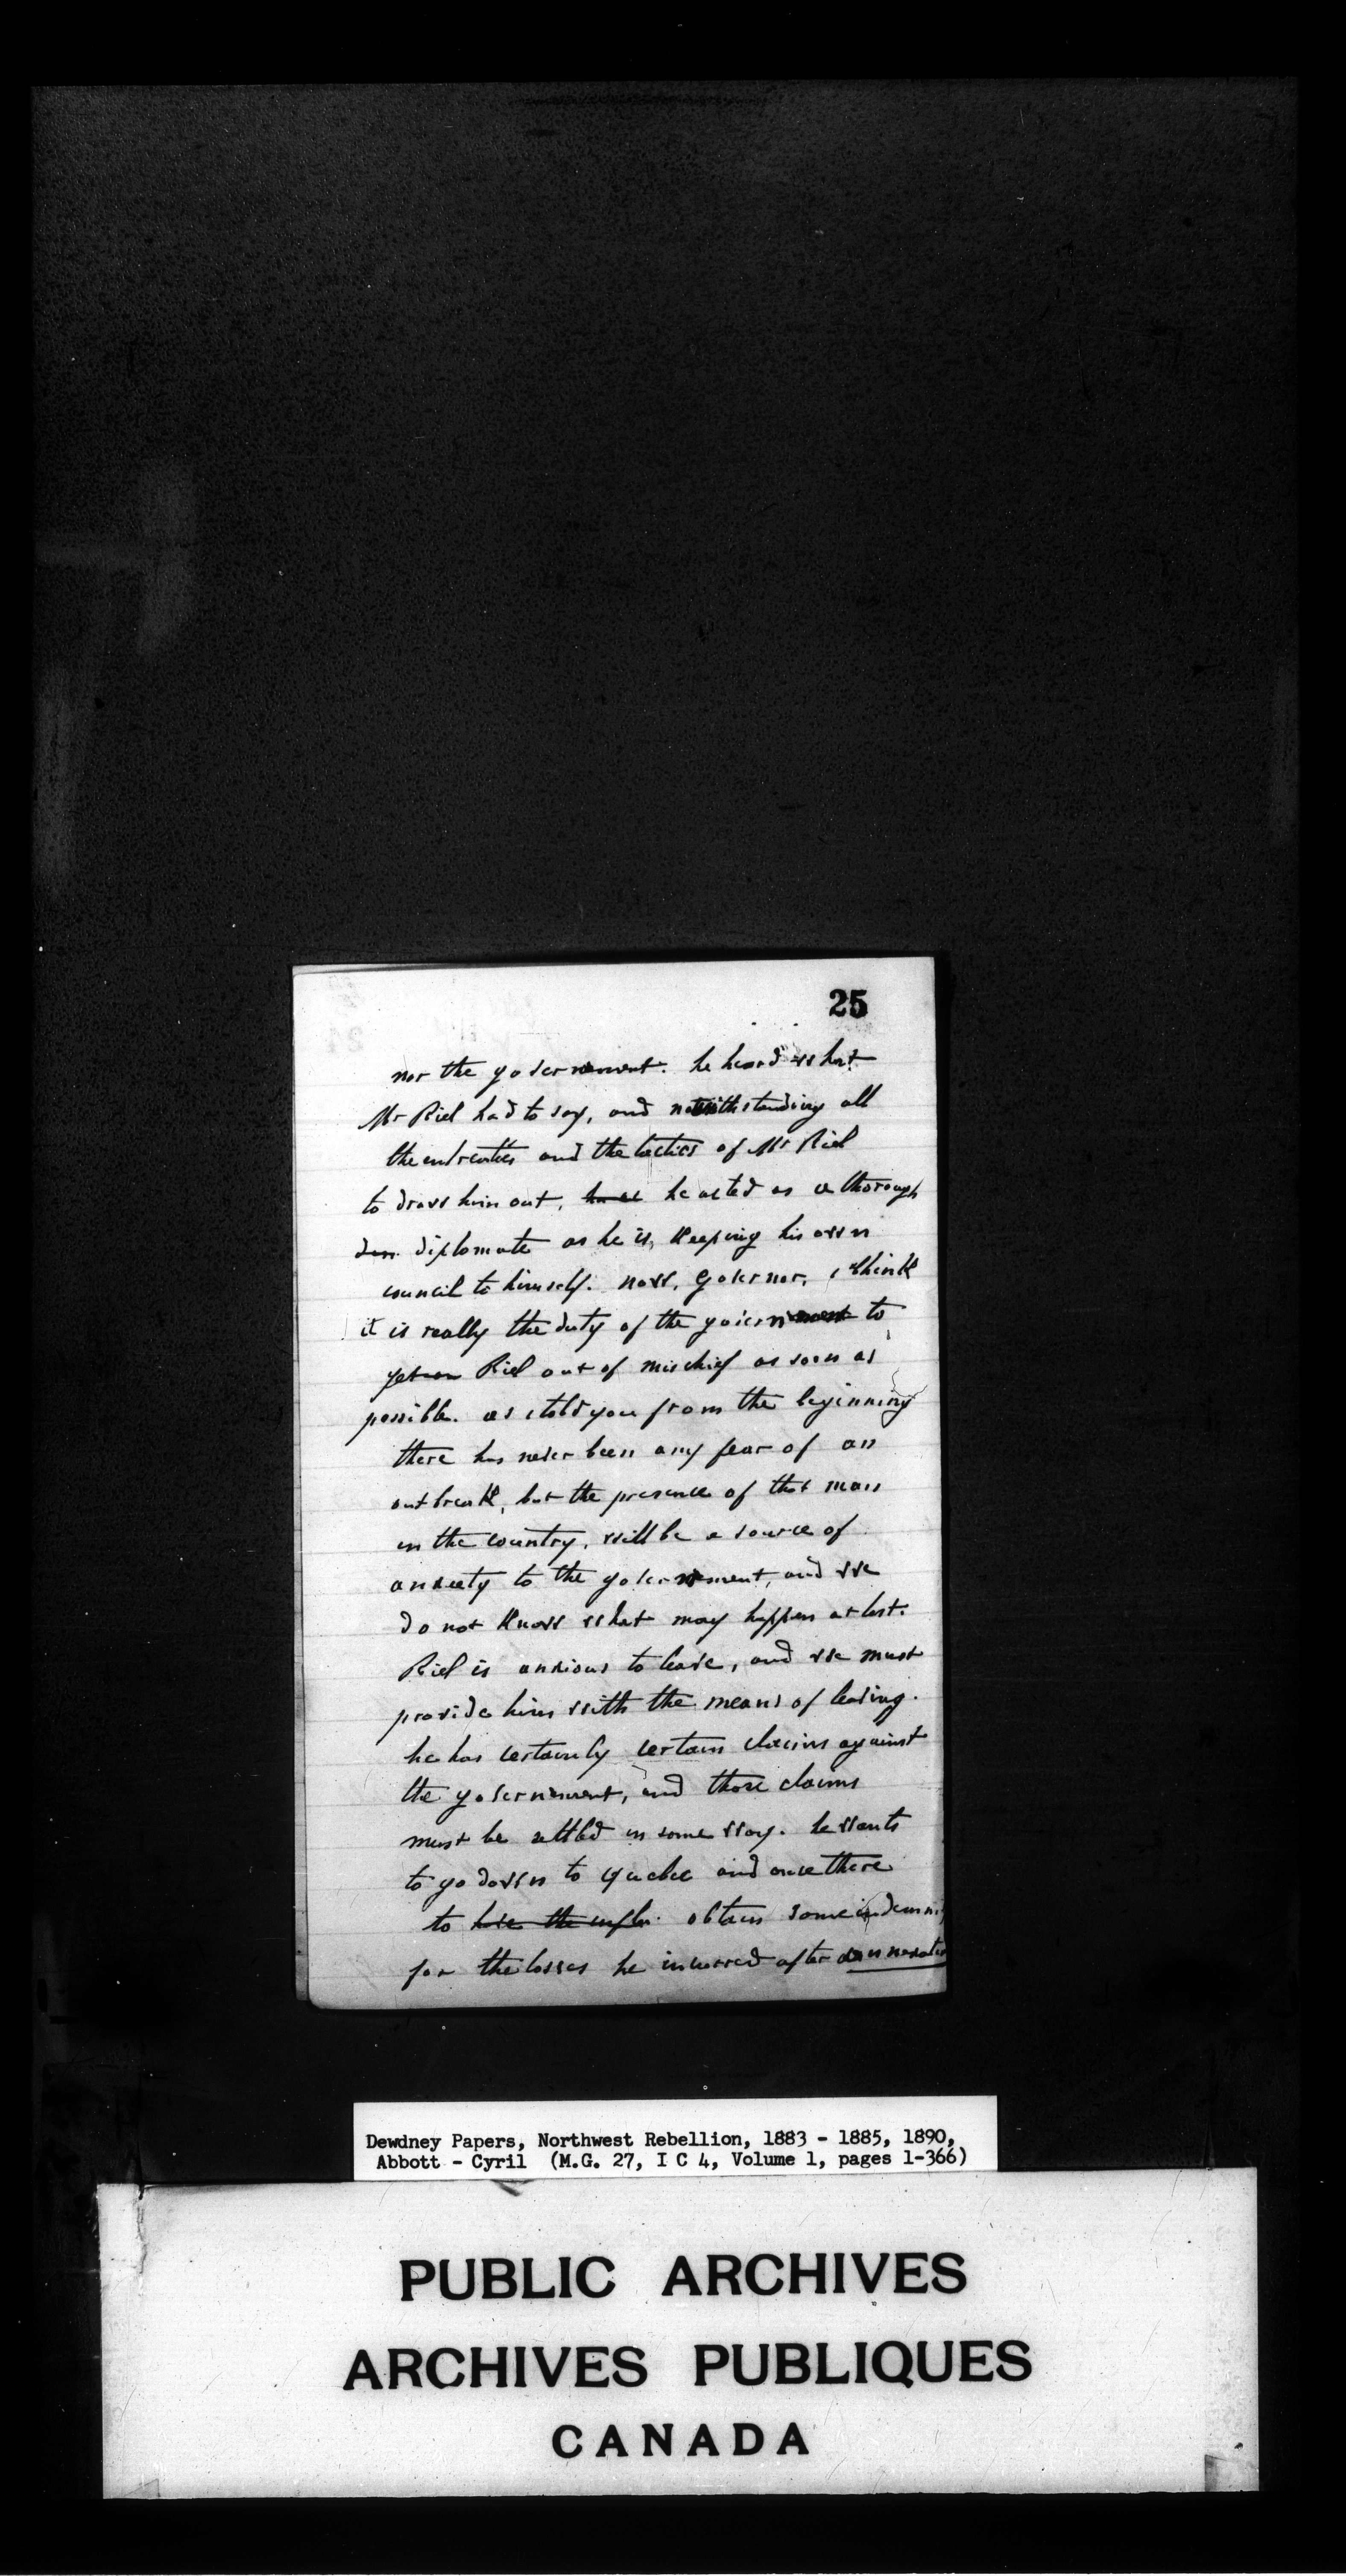 25
nor the government. he heard what
Mr Riel had to say, and notwithstanding all
the entreaties and the tactics of Mr Riel
to draw him out, he acted as a thorough
diplomate as he is, keeping his own
council to himself. now, governor, i think
it is really the duty of the government to
get Riel out of mischief as soon as
possible. as i told you from the beginning
there has never been any fear of an
outbreak, but the presence of that man
in the country, will be a source of
anxiety to the government, and we
do not know what may happen at last.
Riel is anxious to leave, and we must
provide him with the means of leaving.
he has certainly certain claims against
the government, and those claims
must be settled in some way. he wants
to go down to quebec and once there
to obtain some indemni
for the losses he incurred after
Dewdney Papers, Northwest Rebellion, 1883 - 1885, 1890,
Abbott - Cyril (M.G. 27, I C 4, Volume 1, pages 1-366)
PUBLIC ARCHIVES
ARCHIVES PUBLIQUES
CANADA